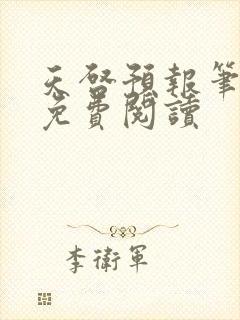 天啓預報筆
免費閱讀
李衛軍